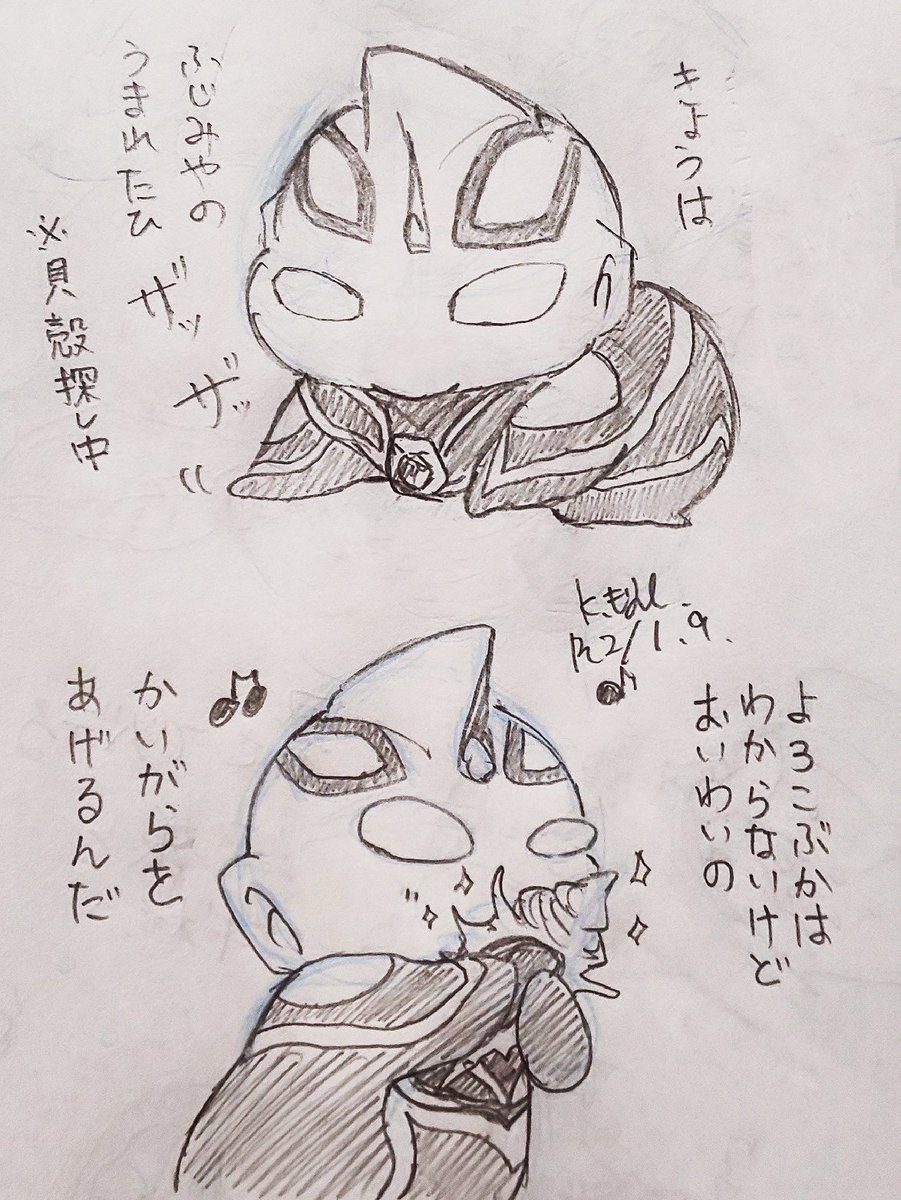 きょうは
ふじみやの
うまれたひ
ザッ
ザッ
※貝殻探し中
R2/1.9.
よろこぶかは
わからないけど
おいわいの
かいがらを
あげるんだ